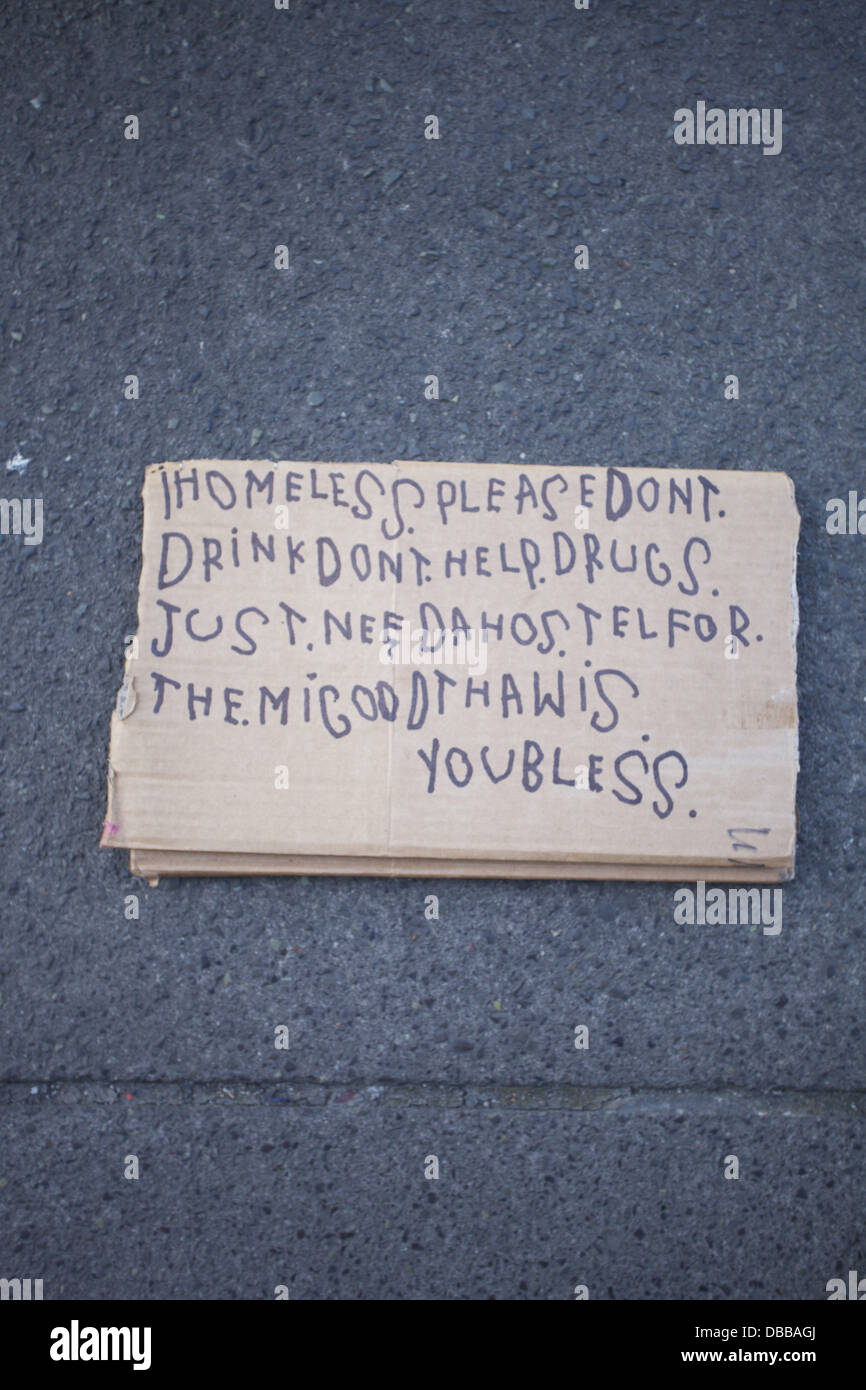 IHOMELESS. PLEASEDONT.
DRiNKDONT. HELP. DRUGS.
JUST. NEEDAHOS. TELFOR.
THE. MiGOODTHAWiS.
YOUBLESS.
alamy
Image ID: DBBAGJ
www.alamy.com